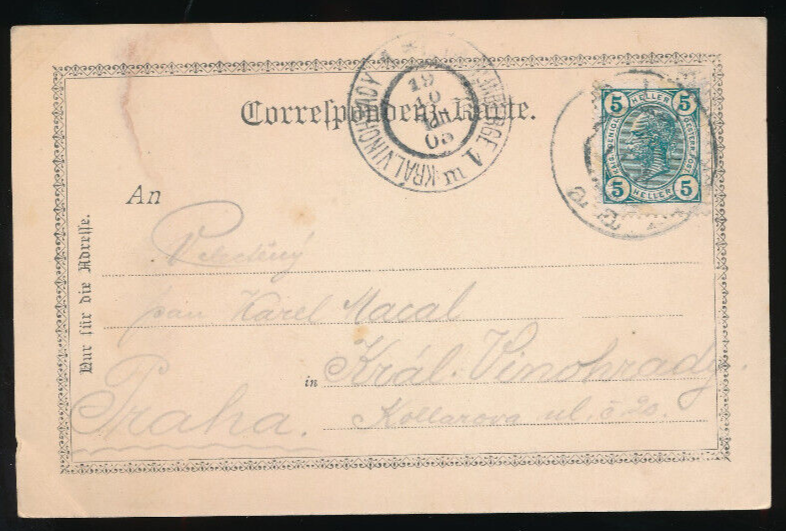 Correspondenz-Karte.
KRÁL. VINOHRADY 1
1 m
19
10
05
5 HELLER 5
5 HELLER 5
An
Nur für die Adresse.
Velectěný
pan Karel Macal
in Král. Vinohrady.
Kollarova ul. č 20.
Praha.